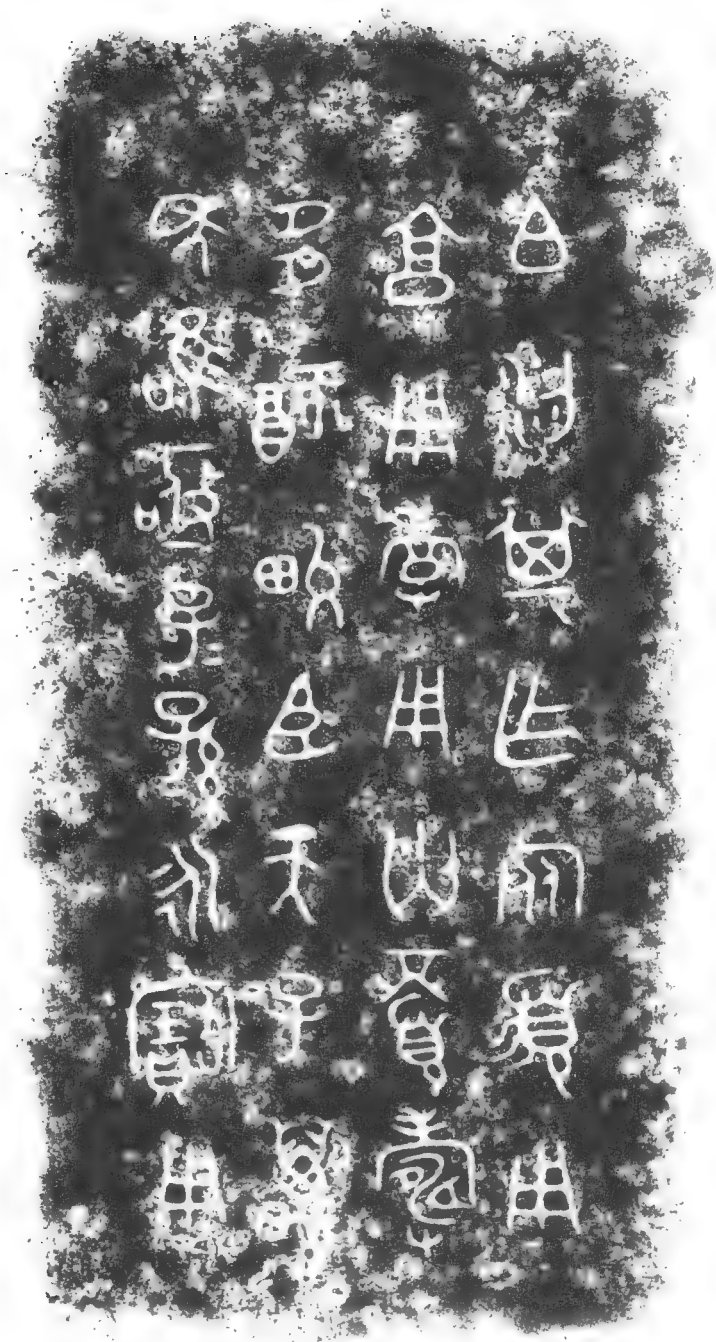 白梁其乍旅須用
亯用孝用匃眉壽
多福畯臣天子萬
年唯亟子=孫=永寶用